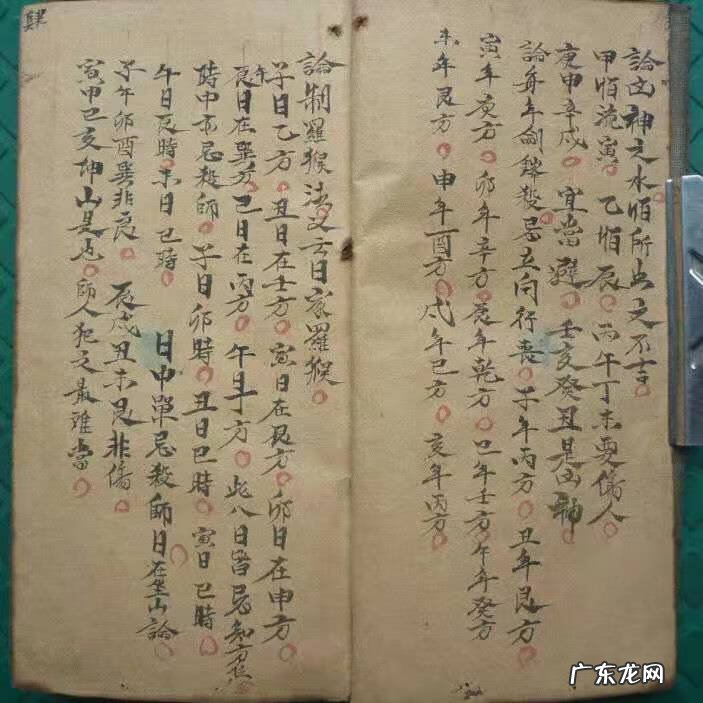 論凶神之水怕所出之不吉
甲怕流寅 乙怕辰 丙午丁未更傷人
庚申辛戌 宜當避 壬亥癸丑是凶神
論每年劍鋒殺忌立向行喪 子年丙方 丑年艮方
寅年庚方 卯年辛方 辰年乾方 巳年壬方 午年癸方
未年艮方 申年酉方 戌年巳方 亥年丙方
論制羅猴法又云日家羅猴
子日乙方 丑日在壬方 寅日在艮方 卯日在申方
辰日在巽方 巳日在丙方 午日丁方 此八日皆忌
時中亦忌殺師 子日卯時 丑日巳時 寅日巳時
午日辰時 未日巳時 日中單忌殺師日在坐山論
子午卯酉巽非良 辰戌丑未艮非傷
寅申巳亥坤山是也 師人犯之最難當
肆
广东龙网